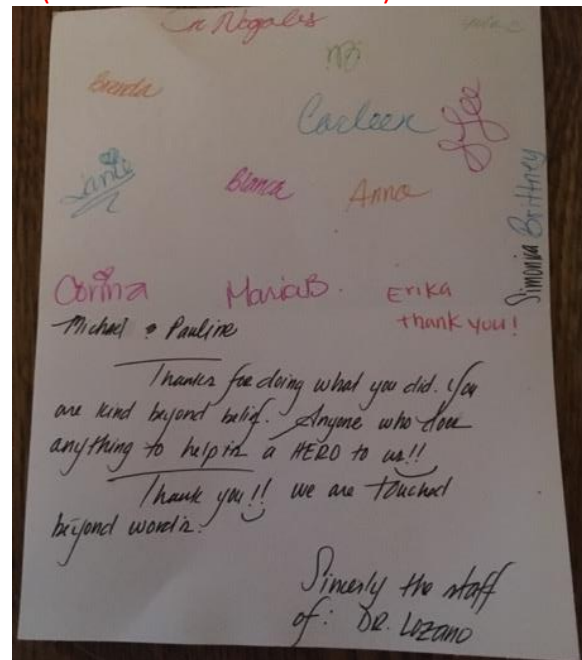 Nogales
Brenda
Carleen
Blanca
Anna
Simonida Brittney
Corina
Maria B.
Erika
thank you!
Michael & Pauline
Thanks for doing what you did. You
are kind beyond belief. Anyone who does
anything to help is a HERO to us!!
Thank you!! we are touched
beyond words.
Sincerly the staff
of: DR. Lozano